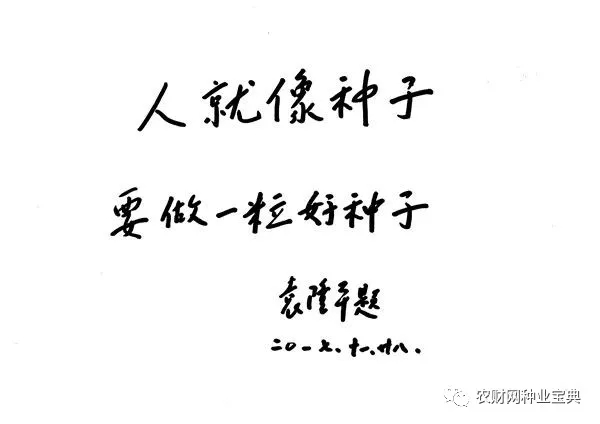 人就像种子
要做一粒好种子
袁隆平题
二〇一七.十一.廿八.
农财网种业宝典